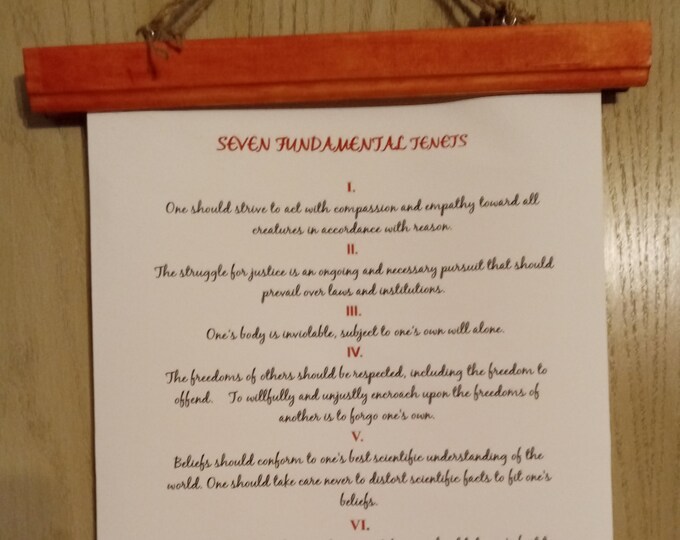 SEVEN FUNDAMENTAL TENETS
I.
One should strive to act with compassion and empathy toward all
creatures in accordance with reason.
II.
The struggle for justice is an ongoing and necessary pursuit that should
prevail over laws and institutions.
III.
One's body is inviolable, subject to one's own will alone.
IV.
The freedoms of others should be respected, including the freedom to
offend. To willfully and unjustly encroach upon the freedoms of
another is to forgo one's own.
V.
Beliefs should conform to one's best scientific understanding of the
world. One should take care never to distort scientific facts to fit one's
beliefs.
VI.